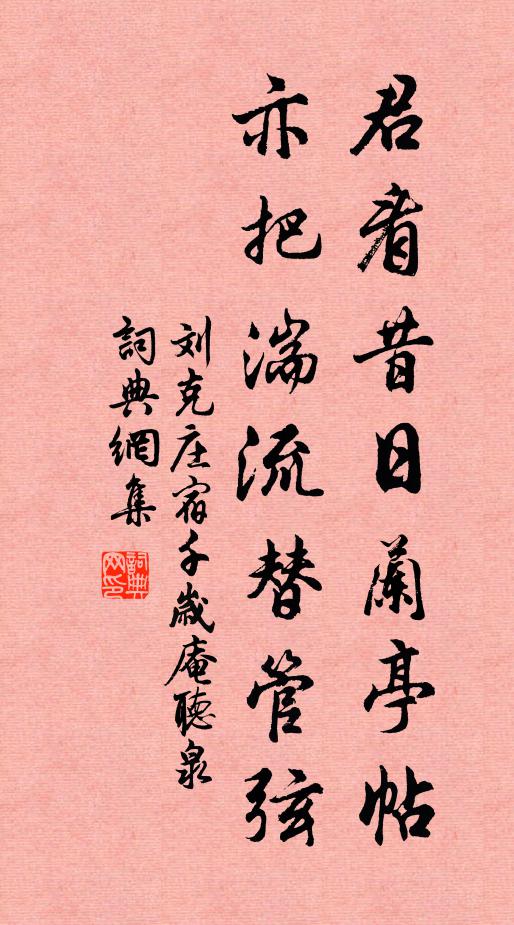 君看昔日蘭亭帖
亦把湍流替管弦
刘克庄宿千歲庵聽泉
詞典網集
詞典網印